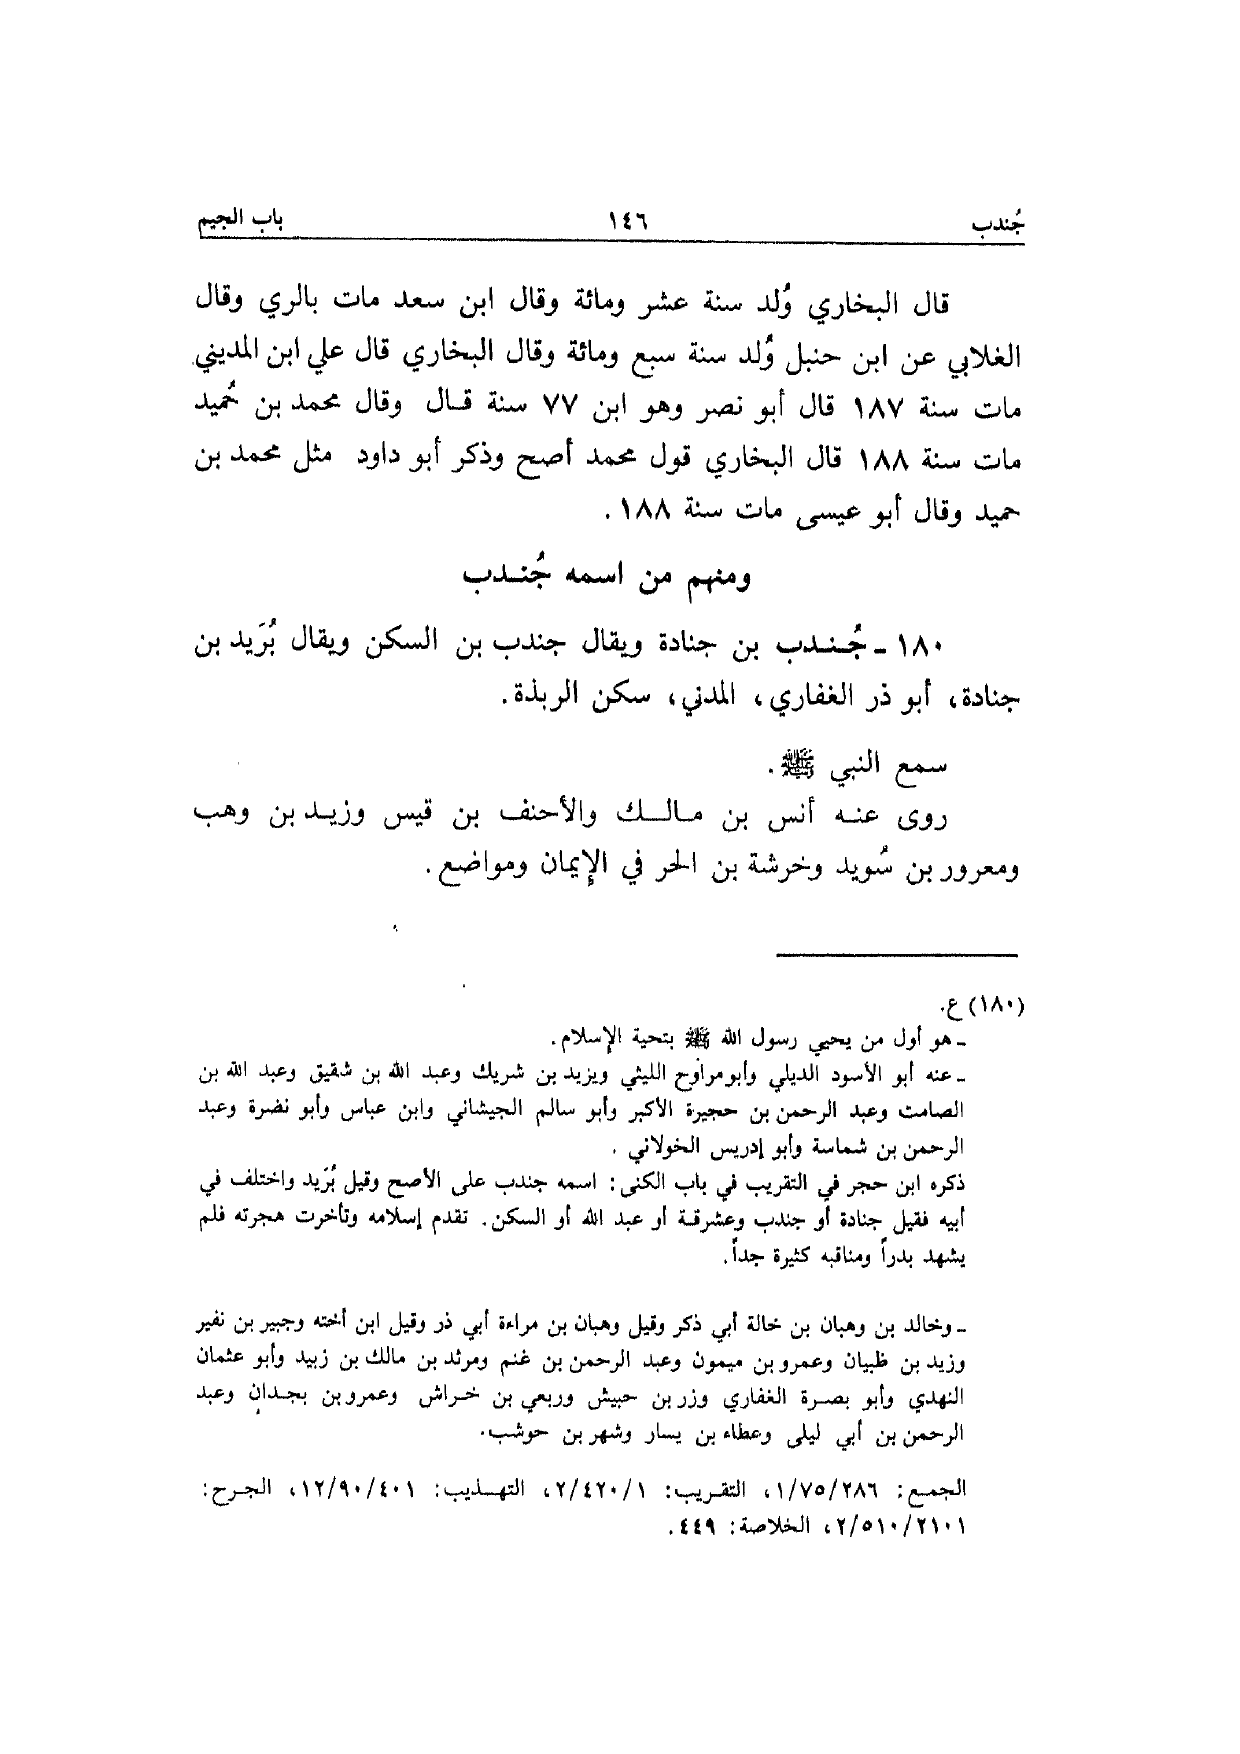 جُندب ١٤٦ باب الجيم
قال البخاري وُلد سنة عشر ومائة وقال ابن سعد مات بالري وقال
الغلابي عن ابن حنبل وُلد سنة سبع ومائة وقال البخاري قال علي ابن المديني
مات سنة ١٨٧ قال أبو نصر وهو ابن ٧٧ سنة قال وقال محمد بن حُميد
مات سنة ١٨٨ قال البخاري قول محمد أصح وذكر أبو داود مثل محمد بن
حميد وقال أبو عيسى مات سنة ١٨٨.
ومنهم من اسمه جُندب
١٨٠ - جُندب بن جنادة ويقال جندب بن السكن ويقال بُرَيد بن
جنادة، أبو ذر الغفاري، المدني، سكن الربذة.
سمع النبي ﷺ.
روى عنه أنس بن مالك والأحنف بن قيس وزيد بن وهب
ومعرور بن سُويد وخرشة بن الحر في الإيمان ومواضع.
(١٨٠) ع.
- هو أول من يحيي رسول الله ﷺ بتحية الإسلام.
- عنه أبو الأسود الديلي وأبو مراوح الليثي ويزيد بن شريك وعبد الله بن شقيق وعبد الله بن
الصامت وعبد الرحمن بن حجيرة الأكبر وأبو سالم الجيشاني وابن عباس وأبو نضرة وعبد
الرحمن بن شماسة وأبو إدريس الخولاني.
ذكره ابن حجر في التقريب في باب الكنى: اسمه جندب على الأصح وقيل بُرَيد واختلف في
أبيه فقيل جنادة أو جندب وعشرقة أو عبد الله أو السكن. تقدم إسلامه وتأخرت هجرته فلم
يشهد بدراً ومناقبه كثيرة جداً.
- وخالد بن وهبان بن خالة أبي ذكر وقيل وهبان بن مراءة أبي ذر وقيل ابن أخته وجبير بن نفير
وزيد بن ظبيان وعمرو بن ميمون وعبد الرحمن بن غنم ومرثد بن مالك بن زبيد وأبو عثمان
النهدي وأبو بصرة الغفاري وزر بن حبيش وربعي بن خراش وعمرو بن بجدان وعبد
الرحمن بن أبي ليلى وعطاء بن يسار وشهر بن حوشب.
الجمع: ١/٧٥/٢٨٦، التقريب: ٢/٤٢٠/١، التهذيب: ١٢/٩٠/٤٠١، الجرح:
٢/٥١٠/٢١٠١، الخلاصة: ٤٤٩.